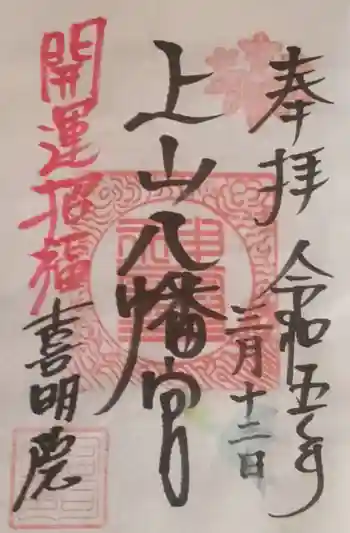 奉拝
令和五年
三月十二日
上山八幡宮
開運招福
喜明慶